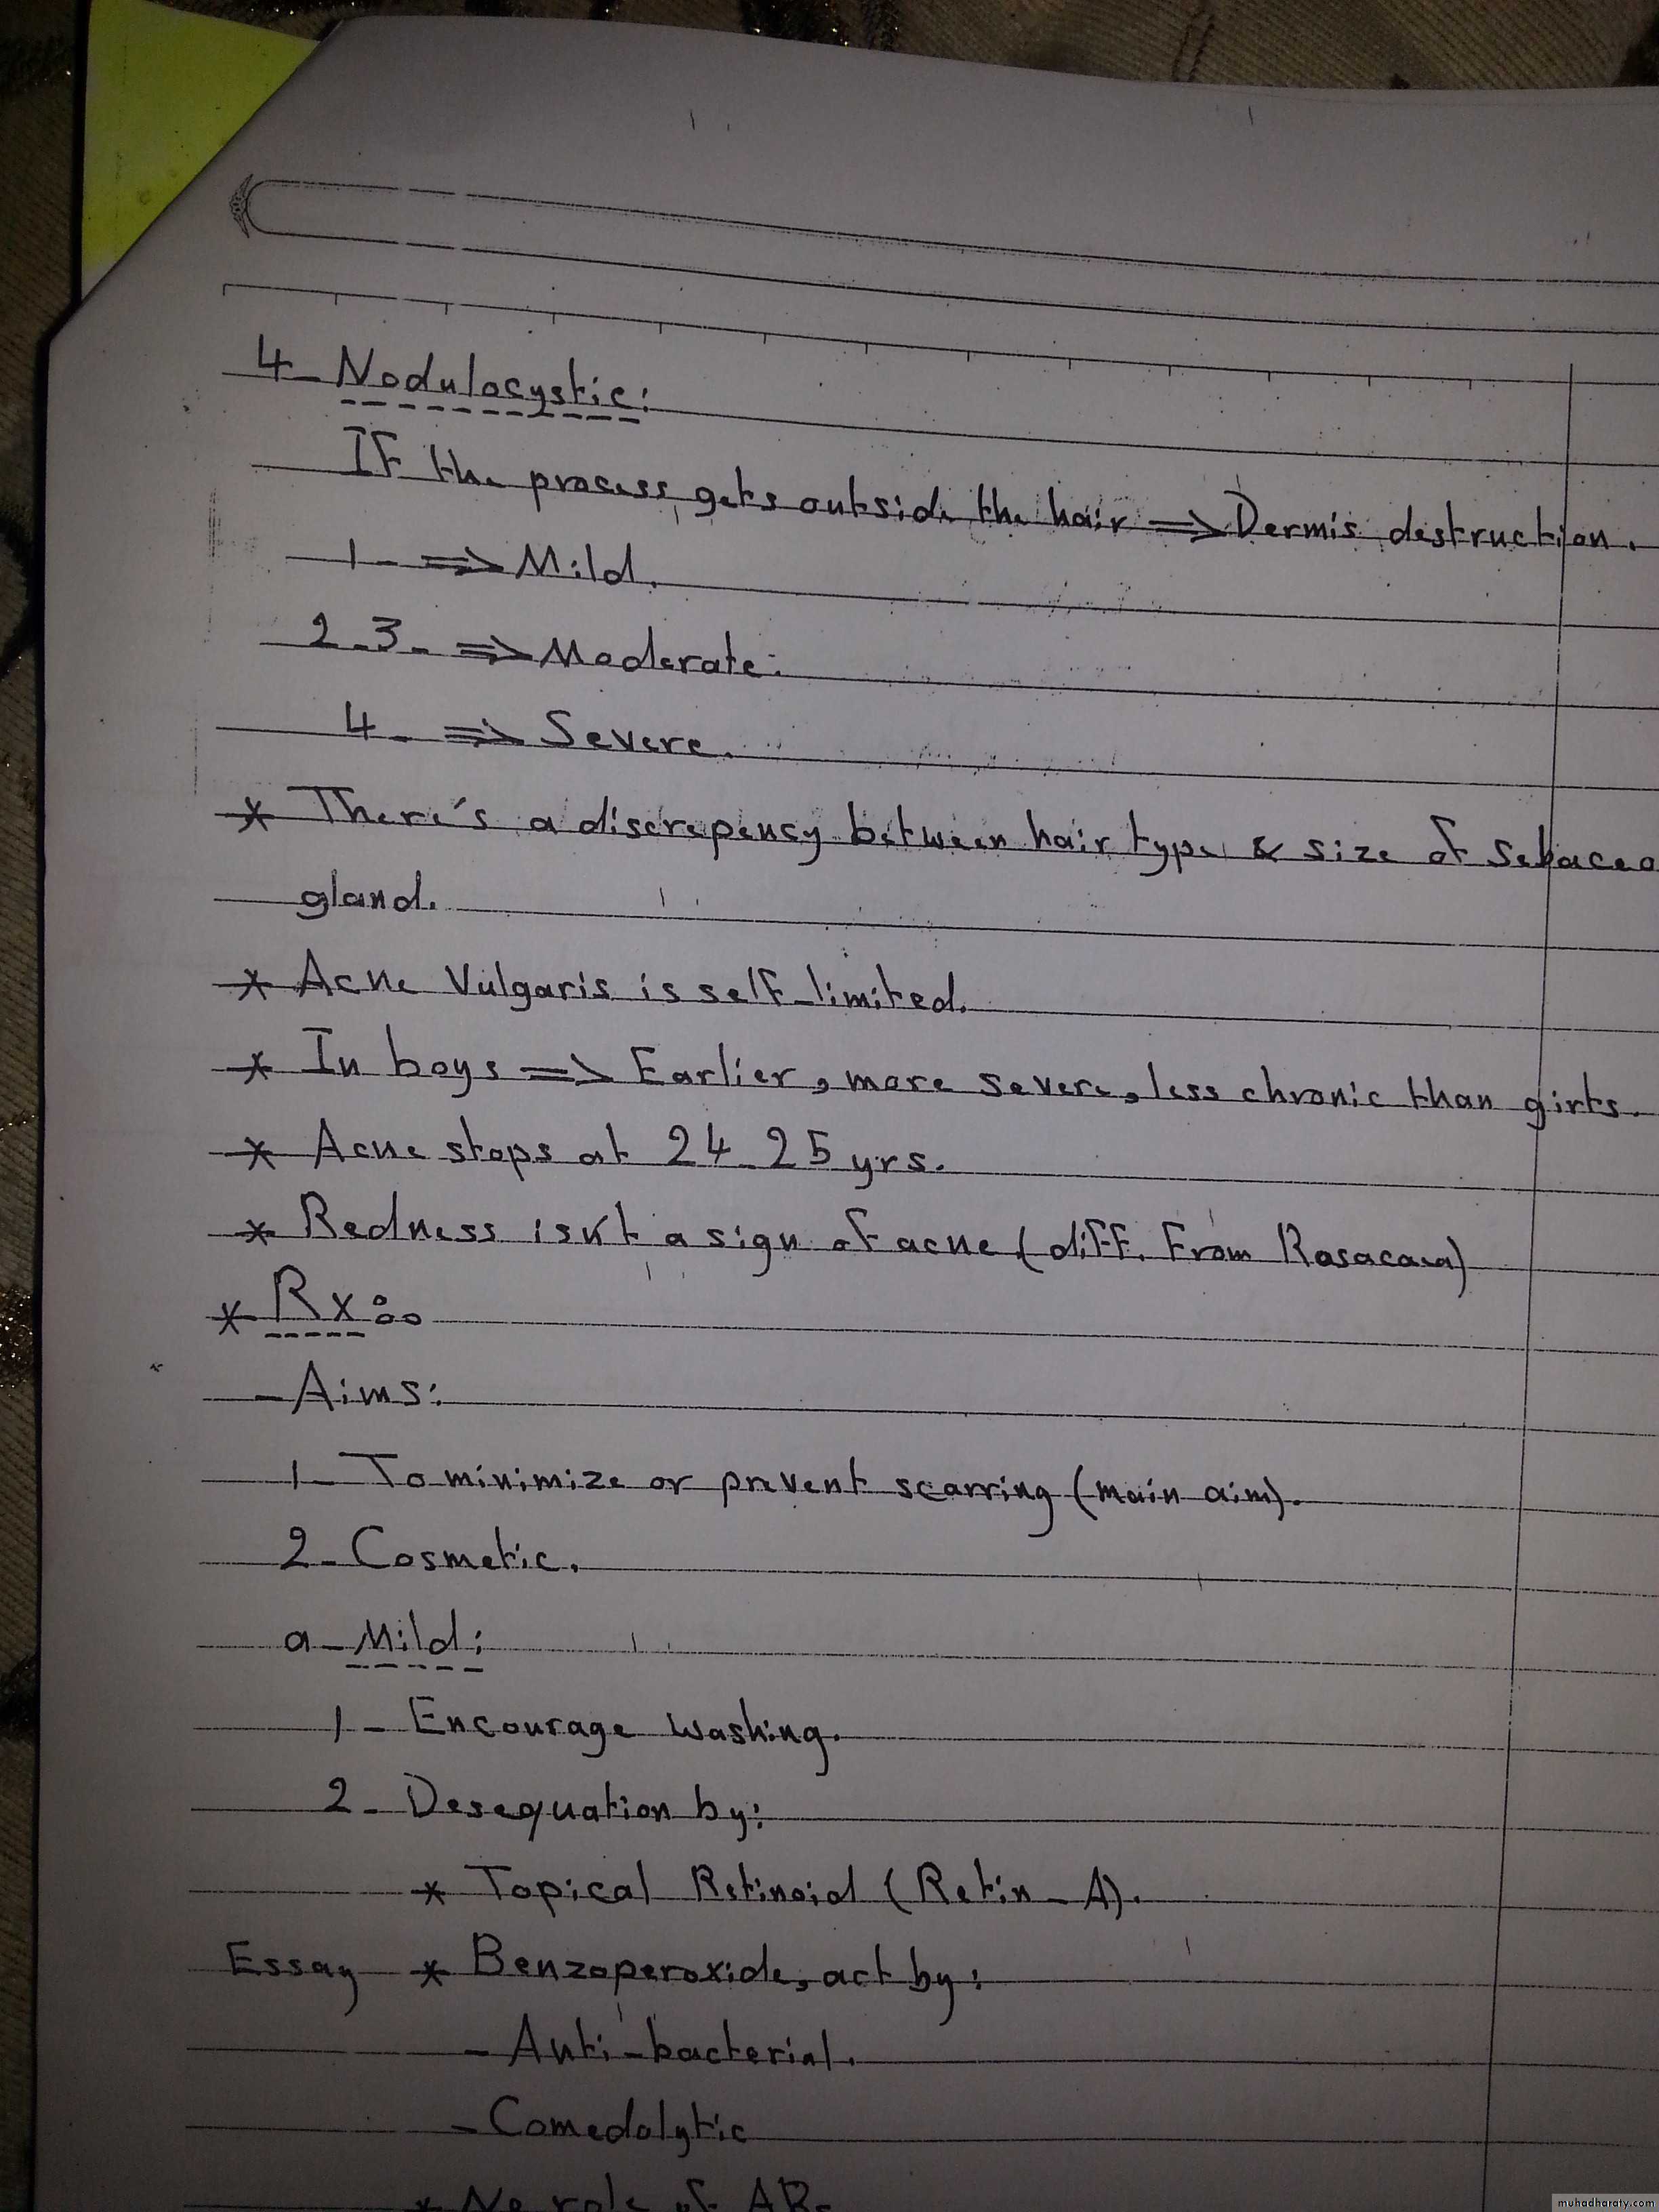 4- Nodulocystic:
IF the process gets outside the hair => Dermis destruction.
1- => Mild.
2-3- => Moderate:
4- => Severe.
* There's a discrepency between hair type & size of Sebaceo
gland.
* Acne Vulgaris is self-limited.
* In boys => Earlier, more severe, less chronic than girls.
* Acne stops at 24-25 yrs.
* Redness isn't a sign of acne (diff. From Rosacaea)
* Rx:
- Aims:
1- To minimize or prevent scarring (main aim).
2- Cosmetic.
a- Mild:
1- Encourage washing.
2- Desequation by:
* Topical Retinoid (Retin-A).
Essay * Benzoperoxide, act by:
- Anti-bacterial.
- Comedolytic
* No role of ABs
muhadharaty.com